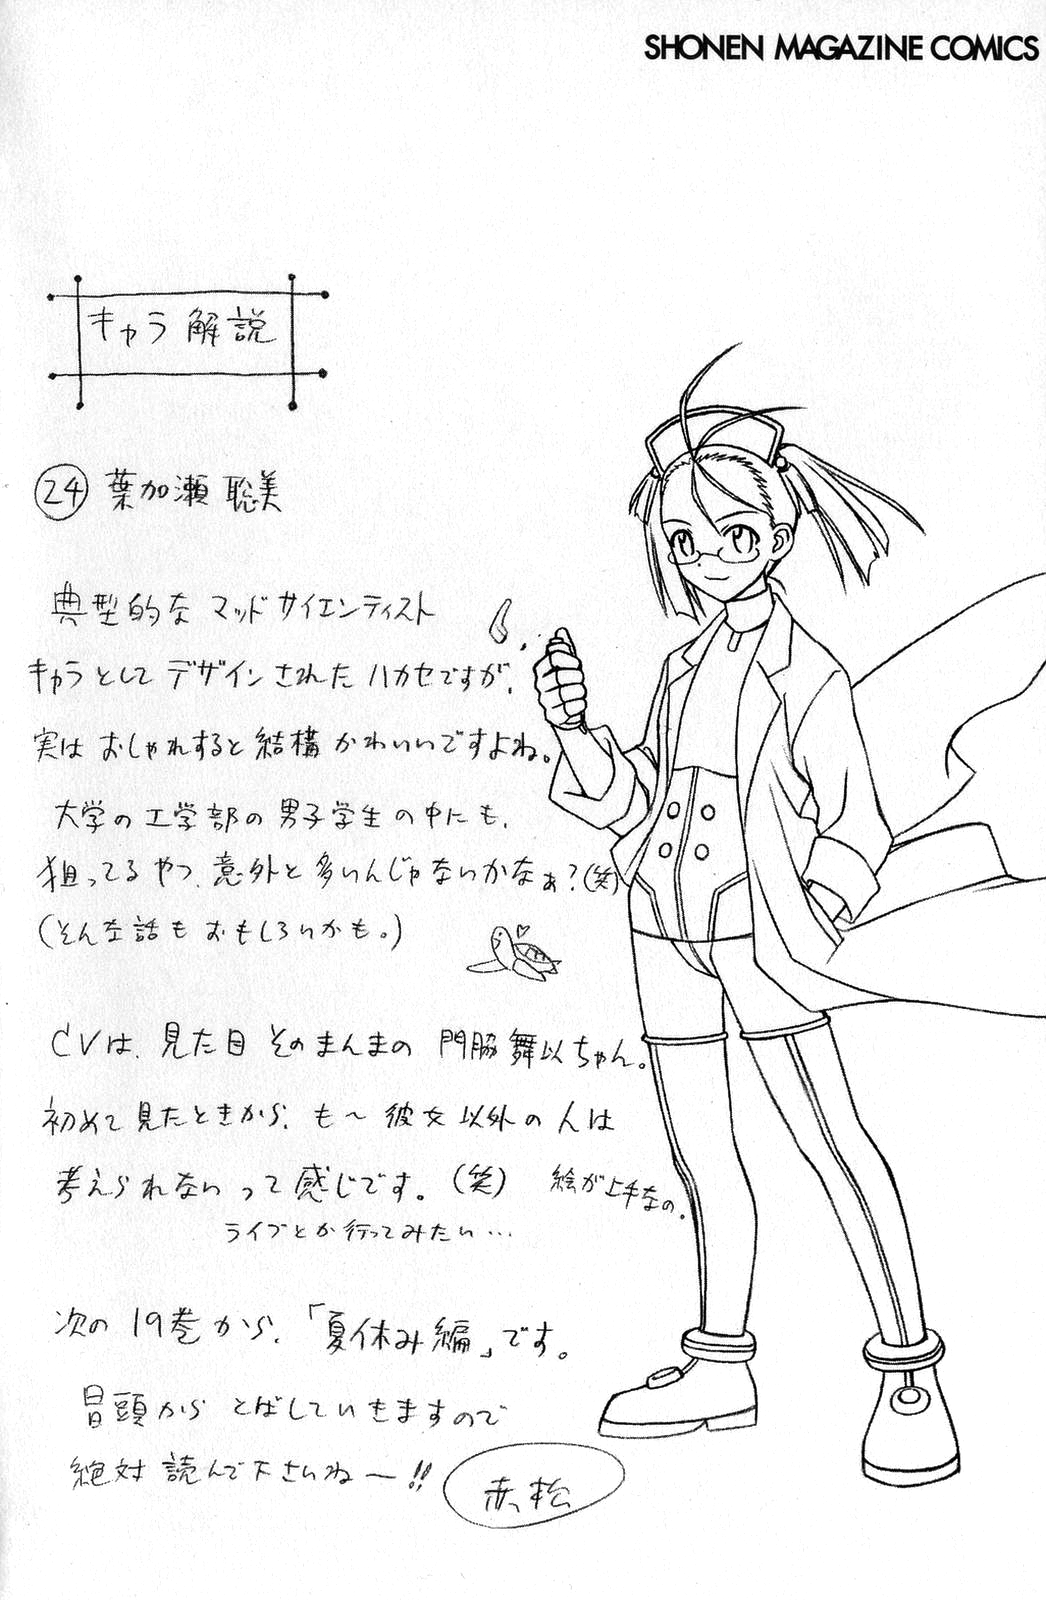 SHONEN MAGAZINE COMICS
キャラ解説
㉔ 葉加瀬 聡美
典型的な マッドサイエンティスト
キャラとして デザインされた ハカセですが、
実は おしゃれすると 結構 かわいいですよね。
大学の 工学部の 男子学生の 中にも、
狙ってるやつ、意外と 多いんじゃないかなぁ?(笑)
(そんな話も おもしろいかも。)
CVは、見た目 そのまんまの 門脇 舞以ちゃん。
初めて 見たときから、も〜 彼女 以外の 人は
考えられないって 感じです。(笑) 絵が上手なの。
ライブとか 行ってみたい…
次の 19巻から、「夏休み編」です。
冒頭から とばしていきますので
絶対 読んで下さいねー!!
赤松